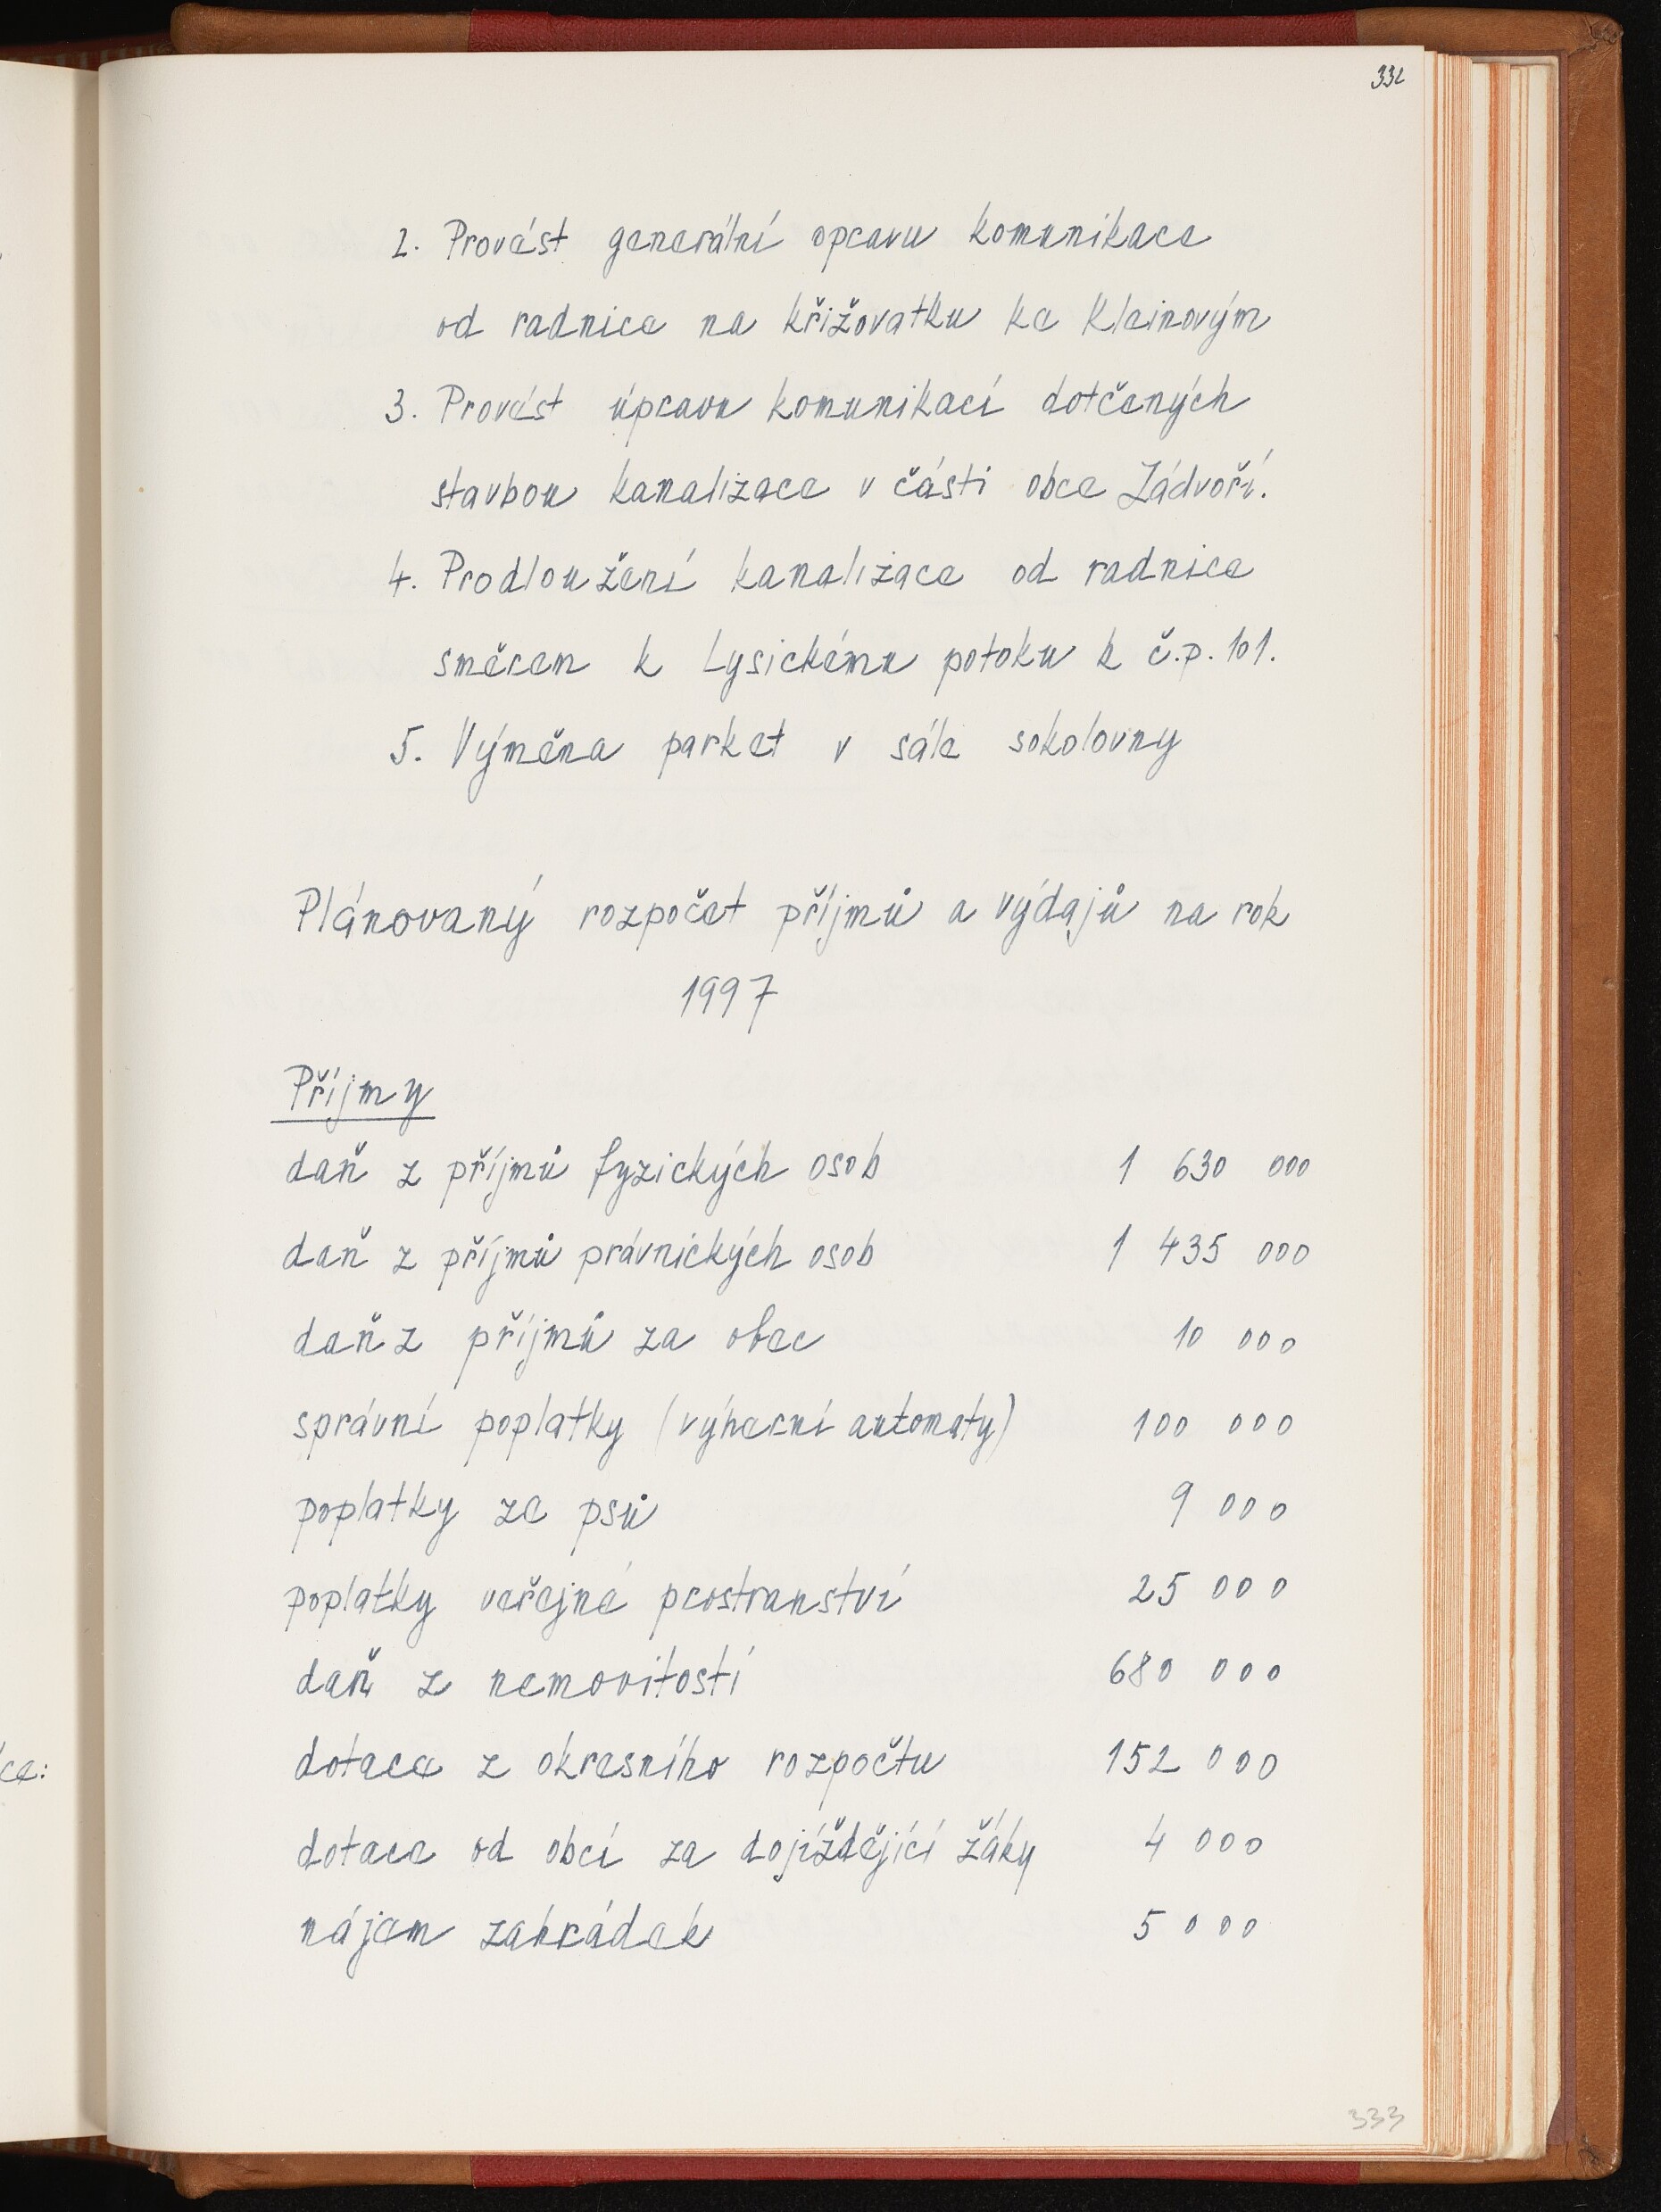 332
2. Provést generální opravu komunikace
od radnice na křižovatku ke Kleinovým
3. Provést úpravu komunikací dotčených
stavbou kanalizace v části obce Zádvoří.
4. Prodloužení kanalizace od radnice
směrem k Lysickému potoku k č.p. 101.
5. Výměna parket v sále sokolovny
Plánovaný rozpočet příjmů a výdajů na rok
1997
Příjmy
daň z příjmů fyzických osob 1 630 000
daň z příjmů právnických osob 1 435 000
daň z příjmů za obec 10 000
správní poplatky (výherní automaty) 100 000
poplatky ze psů 9 000
poplatky veřejné prostranství 25 000
daň z nemovitostí 680 000
dotace z okresního rozpočtu 152 000
dotace od obcí za dojíždějící žáky 4 000
nájem zahrádek 5 000
333